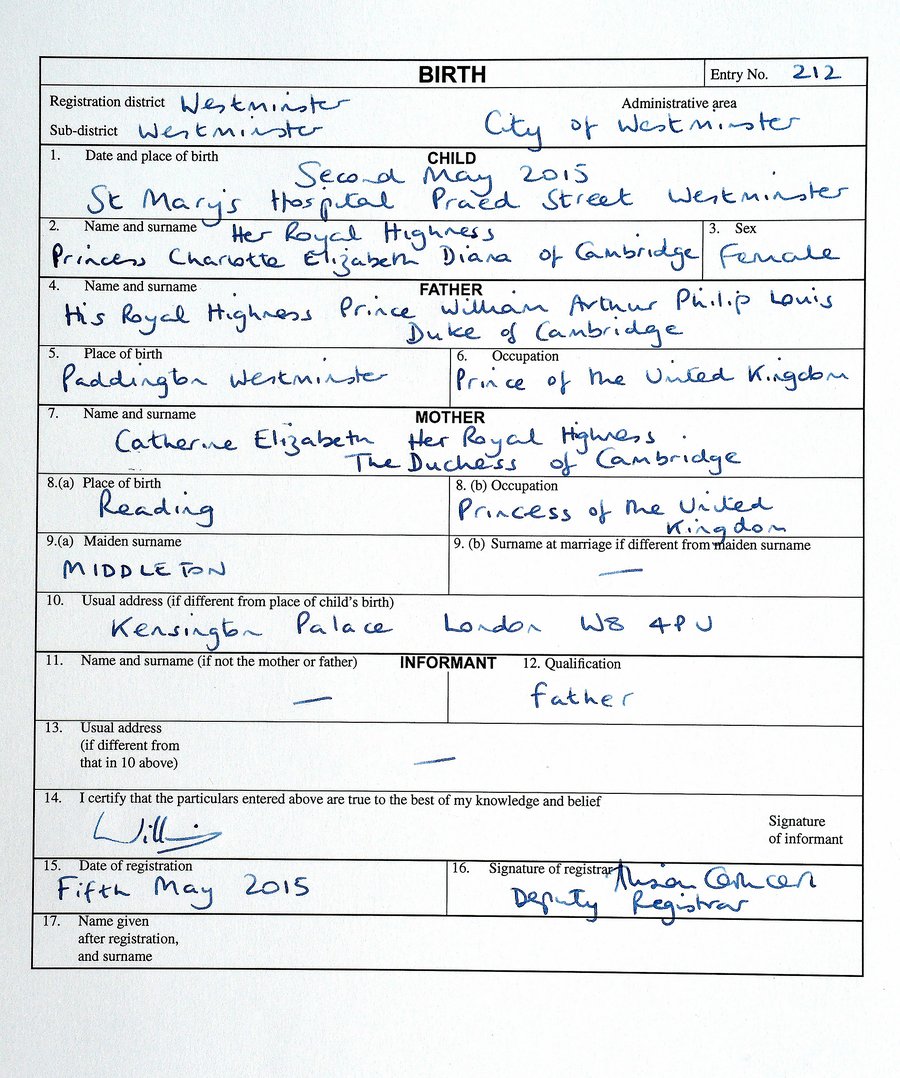 BIRTH Entry No. 212
Registration district Westminster Administrative area
Sub-district Westminster City of Westminster
1. Date and place of birth CHILD
Second May 2015
St Mary's Hospital Praed Street Westminster
2. Name and surname Her Royal Highness 3. Sex
Princess Charlotte Elizabeth Diana of Cambridge Female
4. Name and surname FATHER
His Royal Highness Prince William Arthur Philip Louis
Duke of Cambridge
5. Place of birth 6. Occupation
Paddington Westminster Prince of the United Kingdom
7. Name and surname MOTHER
Catherine Elizabeth Her Royal Highness
The Duchess of Cambridge
8.(a) Place of birth 8. (b) Occupation
Reading Princess of the United
Kingdom
9.(a) Maiden surname 9. (b) Surname at marriage if different from maiden surname
MIDDLETON —
10. Usual address (if different from place of child's birth)
Kensington Palace London W8 4PU
11. Name and surname (if not the mother or father) INFORMANT 12. Qualification
— Father
13. Usual address
(if different from
that in 10 above) —
14. I certify that the particulars entered above are true to the best of my knowledge and belief
William Signature
of informant
15. Date of registration 16. Signature of registrar Alison
Fifth May 2015 Deputy Registrar
17. Name given
after registration,
and surname